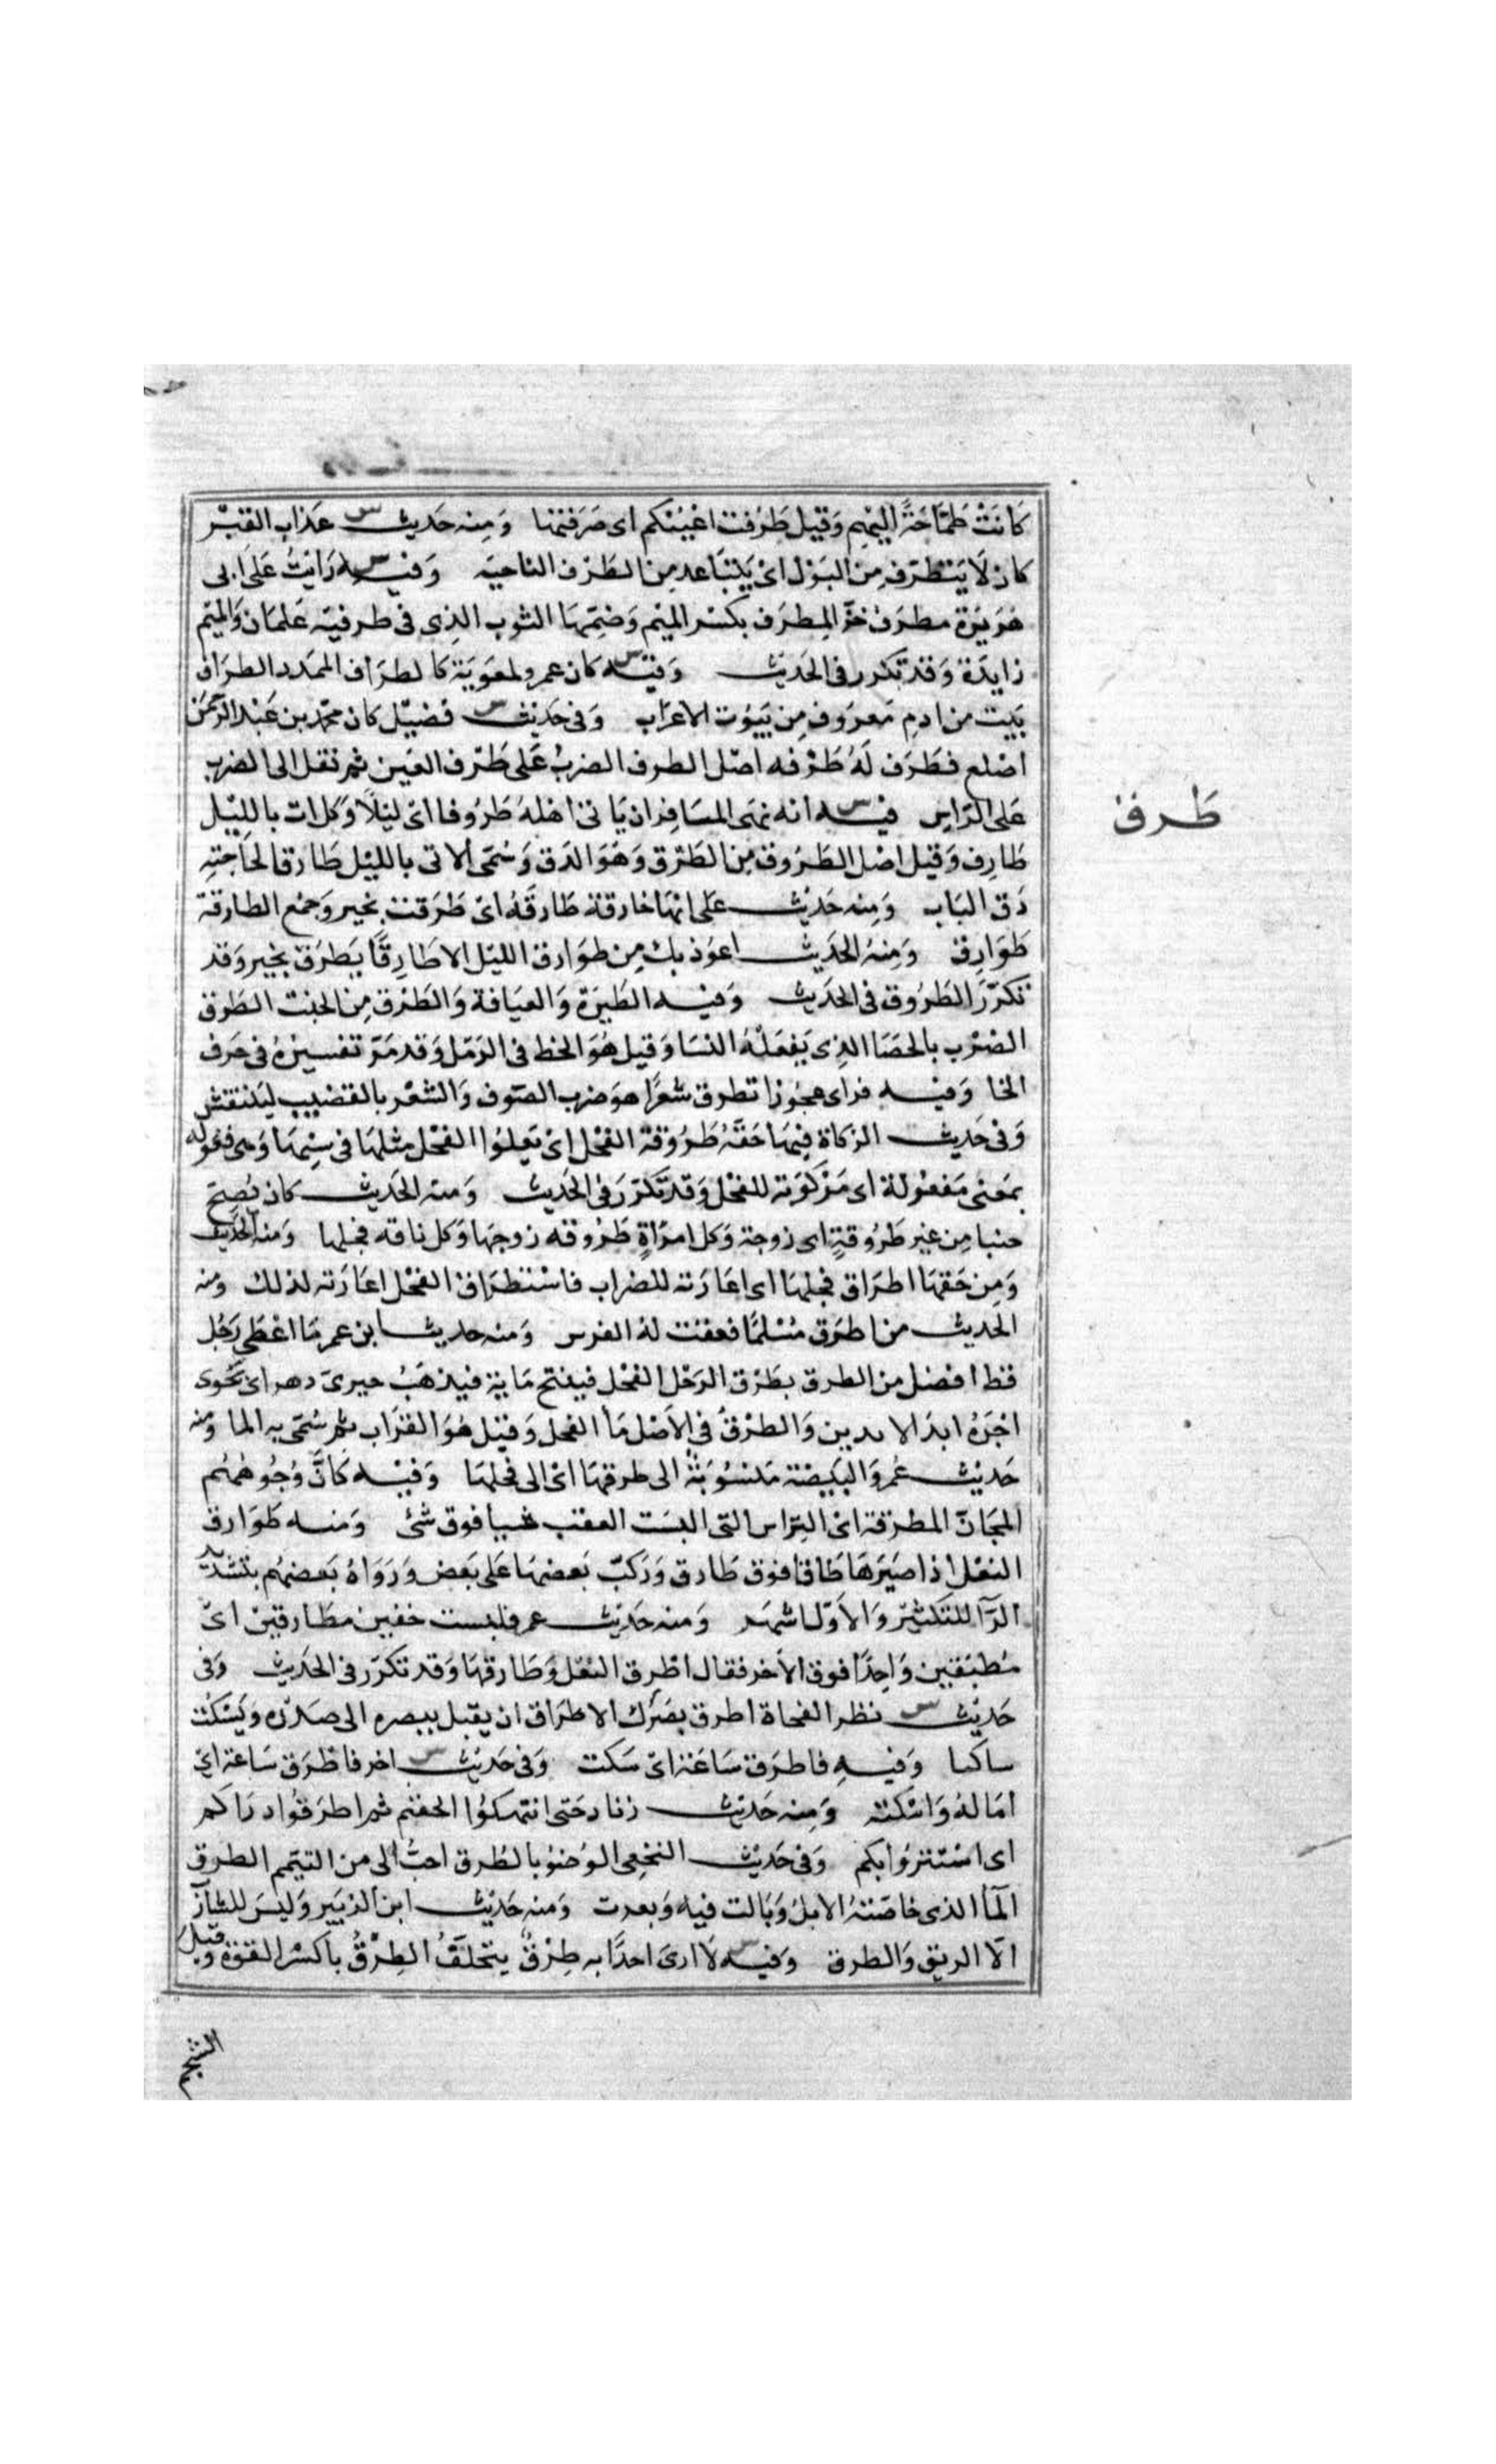 كَانَتْ طَمَّاحَةً اليهم وَقيل طَرَفت اعينكم اى صَرَفتها وَمنه حَديث س عذاب القبر
كان لا يَتطرّف مِن البَوْل اىْ يَتباعد مِن الطَرف الناحيَة وَفيـه س رَايتُ عَلَى ابى
هُرَيرَة مطرَفُ خزّ المِطرَف بكسْر الميْم وَضمّهَا الثوب الذِى فى طرفيَه عَلمَان وَالميَم
زايدَة وَقد تكرر فى الحَديث وَفيـه س كان عمرو لمعَويَة كالطرَاف الممَدد الطرَاف
بَيت من ادم مَعرَوف مِن بَيُوت الاعرَاب وَفى حَديث س فضيْل كان محمّد بن عَبْد الرَّحمَن
اصْلع فطَرَف لَهُ طَرْفه اصْل الطرف الضربُ عَلى طَرْف العَين ثم نقل الى الضرب
عَلى الرَاس فيـه س انه نهَى المسَافر ان يَاتى اهْلهُ طرُوقا اىْ ليْلاً وَكل ات بالليْل
طَارق وَقيل اصْل الطَرُوق مِن الطَرْق وَهوَ الدَق وَسُمّى الاتى بالليْل طَارقا لحاجَتِهِ
دَق البَاب وَمِنه حَديث عَلى انهَا خارقة طَارقَهُ اىْ طَرَقت بخير وَجمْع الطارقة
طَوَارق وَمِنهُ الحَديث اعوَذ بك مِن طوَارق الليْل الا طَارِقًا يَطرَق بخير وَقد
تكرّرَ الطَرُوق فى الحَديث وَفيـه الطيَرة وَالعيَافة وَالطَرْق مِن الجبْت الطَرق
الضرْب بالحَصَا الذِى يَفعَلْهُ النسَا وَقيل هُوَ الخط فى الرَمل وَقد مَرّ تفسيرهُ فى حَرف
الخا وَفيـه فراى عجوزا تطرق شعرًا هوَ ضرب الصَوف وَالشعْر بالقضيب ليَنتفش
وَفى حَديث الزكاة فِيهَا حَقهُ طَرُوقة الفحْل اىْ يَعلوُا الفحْل مثلهَا فى سِنهَا وَهى فعولَه
بمَعْنى مَفعُولة اى مَرْكوَبَة للفحْل وَقد تكرّرَ فى الحَديث وَمنه الحَديث كان يُصبح
جنبا مِن غيْر طَرُوقةٍ اى زوجة وَكل امرَاةٍ طَرُوقه زوجهَا وَكل ناقه فحلها وَمنه الحَديث
وَمِن حَقهَا اطرَاق فحلهَا اى اعَارَته للضراب فاسْتطرَاق الفحْل اعَارَته لذلك وَمنه
الحديث من اطرَق مُسْلمًا فعقت لهُ الفرس وَمنه حديث ابن عمر مَا اعْطى رَجُل
قط افضل من الطرق يطرْق الرَجْل الفحْل فيلقح مَاية فيذهَبُ حيرىّ دهر اىْ يَحوى
اجْرَهُ ابدَ الابدين وَالطرْقُ فى الاَصْل مَا الفحل وَقيْل هُوَ الضرَاب ثم سُمّى به الما وَمنه
حَديْث عُمر وَالبَيضة مَنسُوبَةٌ الى طرقهَا اىْ الى فحلهَا وَفيْـه كَانَّ وُجُوهَهُم
المجَانّ المطْرَقة اىْ التِرَاس التى البسَت العقب شيا فوق شئ وَمنـه طوَارق
النعْل اذا صَيَرهَا طَاقا فوق طَاق وَرَكبّ بَعضهَا عَلى بَعض وَرَوَاهُ بَعضهُم بتشديد
الرَّا للتكثير وَالاَوّل اشهَر وَمنه حَديْث عمر فلبست خفين مطَارقين اىْ
مُطبَقين وَاحِدًا فوق الاَخر فقال اطْرق النعْل وَطَارقهَا وَقد تكرّر فى الحَديث وَفى
حَديْث س نظر الفجاة اطرق بصَرَك الاطرَاق ان يقبل ببصره الى صَدْره وَيَسْكت
ساكنا وَفيـهِ فاطرَق سَاعَة اىْ سَكت وَفى حَديْث س اخر فاطْرَق سَاعة اىْ
امَالهُ وَاسْكتَه وَمِنه حَديْث زناد حَتى انتهَكوُا الحَرَيم ثم اطرَقوُا ورَاكم
اى اسْتترُوا بكم وَفى حَديْث النخعِى الوُضوُ بالطَرق احبُّ الى من التيمّم الطرق
المَا الذى خاضَتهُ الابلُ وَبَالت فيه وَبعرت وَمنه حَديْث ابن الزبَير وَليْسَ للشارِب
الا الريق وَالطرق وَفيـه س لَا ارىَ احدًا به طِرْقٌ يتخلَّفُ الطِرْقُ بالكسْر القوَة وَقيْل
طَرق
الشحم